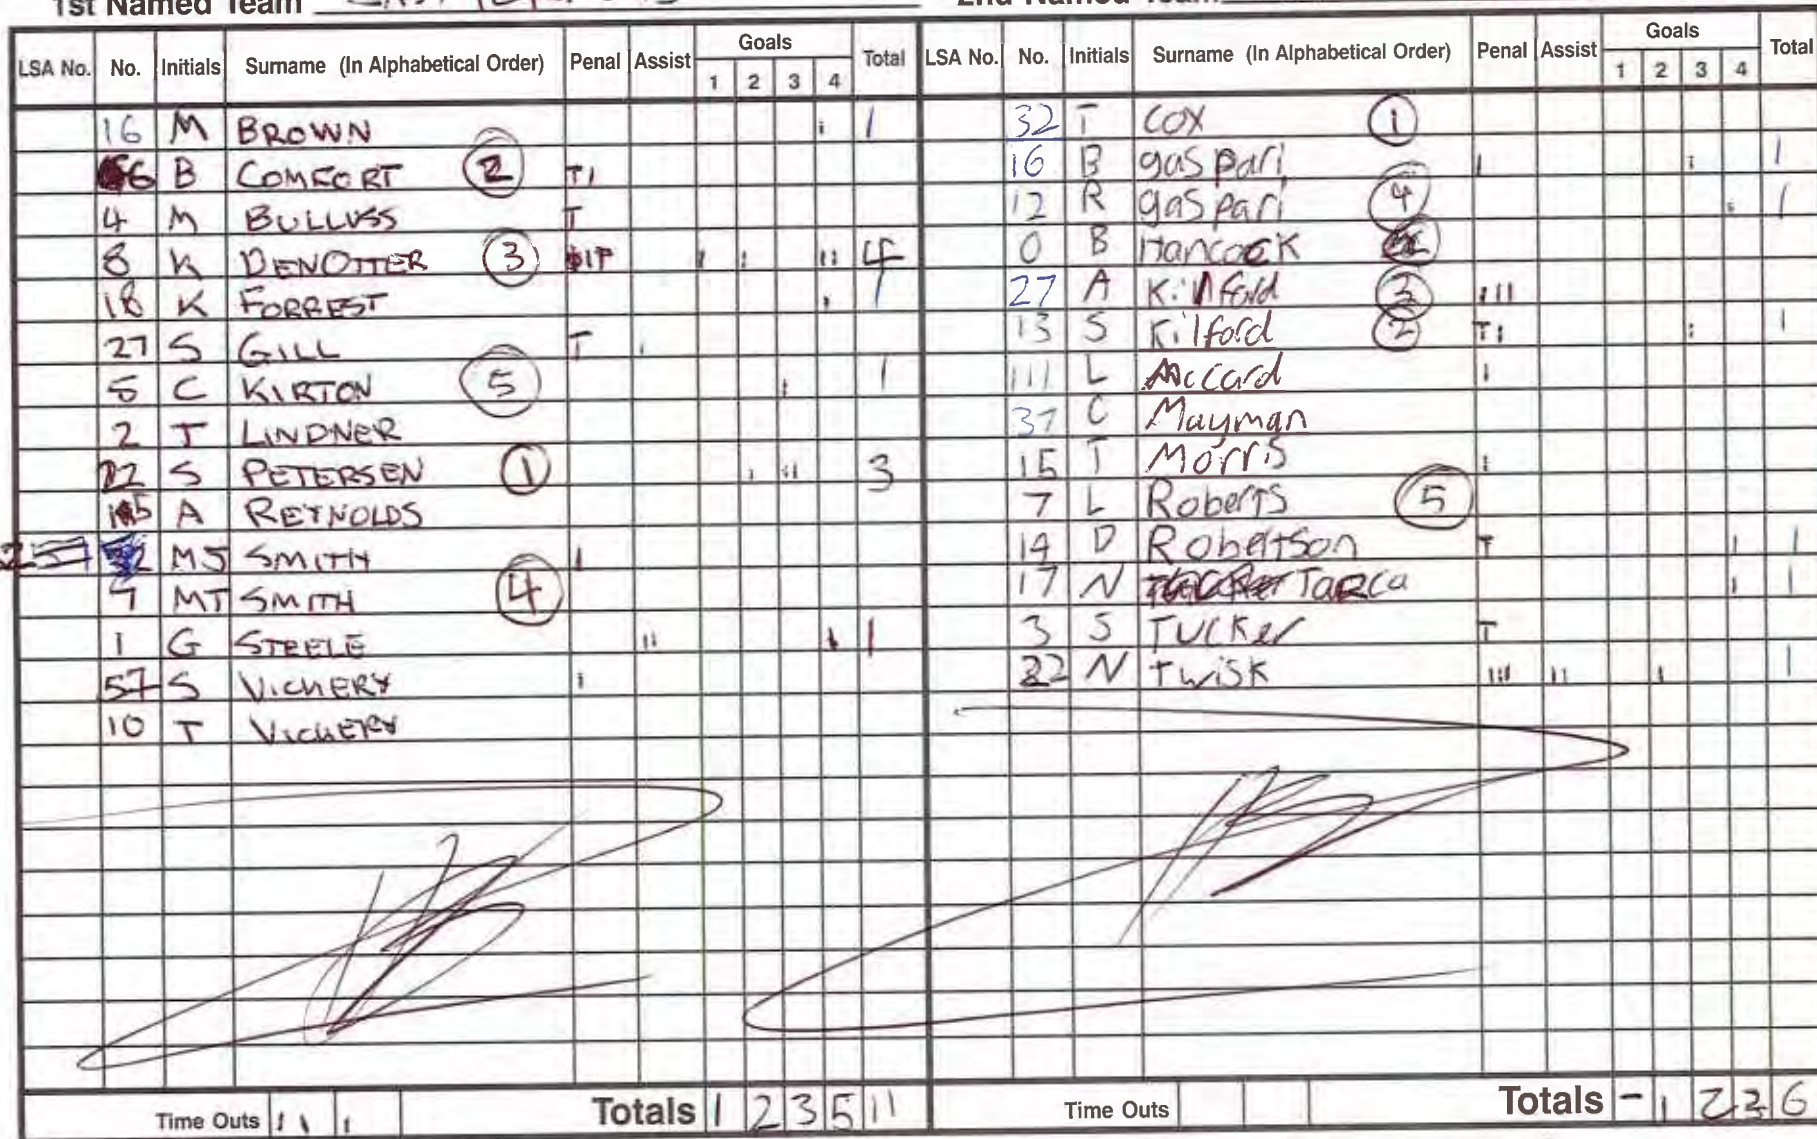 1st Named Team
2nd Named Team
LSA No. No. Initials Surname (In Alphabetical Order) Penal Assist Goals 1 2 3 4 Total
16 M BROWN ı 1
6 B COMFORT 2 T1
4 M BULLUSS T
8 K DENOTTER 3 ı ı ıı 4
18 K FORREST ı 1
27 S GILL T ı
5 C KIRTON 5 ı 1
2 T LINDNER
22 S PETERSEN 1 ı ıı 3
A REYNOLDS
MJ SMITH 1
7 MT SMITH 4
1 G STEELE ıı ı 1
57 S VICHERY ı
10 T VICHERY
Time Outs ı ı ı Totals 1 2 3 5 11
LSA No. No. Initials Surname (In Alphabetical Order) Penal Assist Goals 1 2 3 4 Total
32 T COX 1
16 B gaspari ı ı 1
12 R gaspari 4 ı 1
0 B Hancock
27 A Kilford 3 ııı
13 S Kilford 2 Tı ı 1
111 L McCard ı
37 C Mayman
15 T Morris ı
7 L Roberts 5
14 D Robertson T ı 1
17 N Tarca ı 1
3 S Tucker T
22 N Twisk ııı ıı ı 1
Time Outs Totals - 1 2 3 6